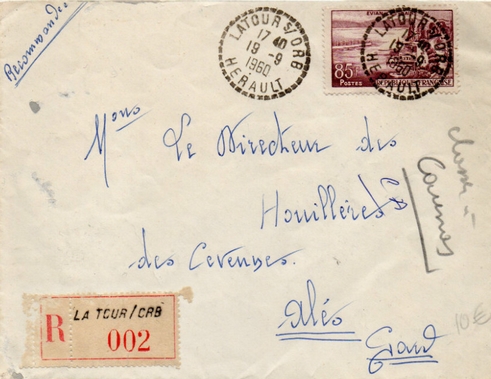 Recommandée
LATOUR S/ ORB
17 40
19 -9
1960
HERAULT
EVIAN
85F
POSTES
REPUBLIQUE FRANÇAISE
LATOUR S/ ORB
1960
HERAULT
Mons Le Directeur des
Houillères
des Cevennes.
Alés
Gard
R
LA TOUR/ORB
002
10€